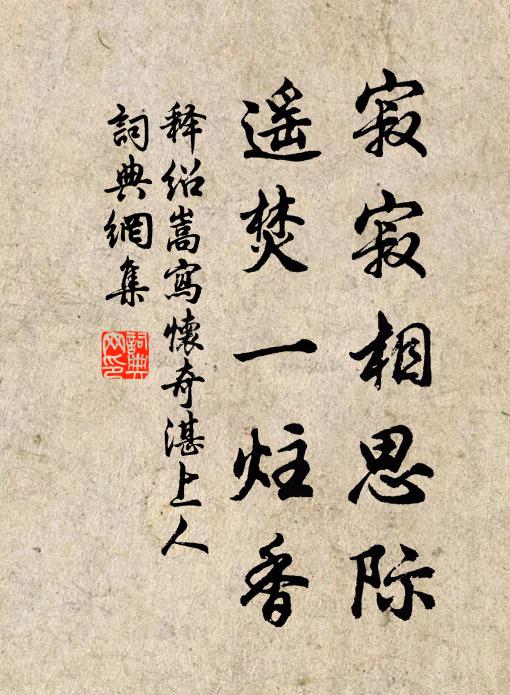 寂寂相思际
遥焚一炷香
释绍嵩寫懷奇湛上人
詞典網集
詞典網印